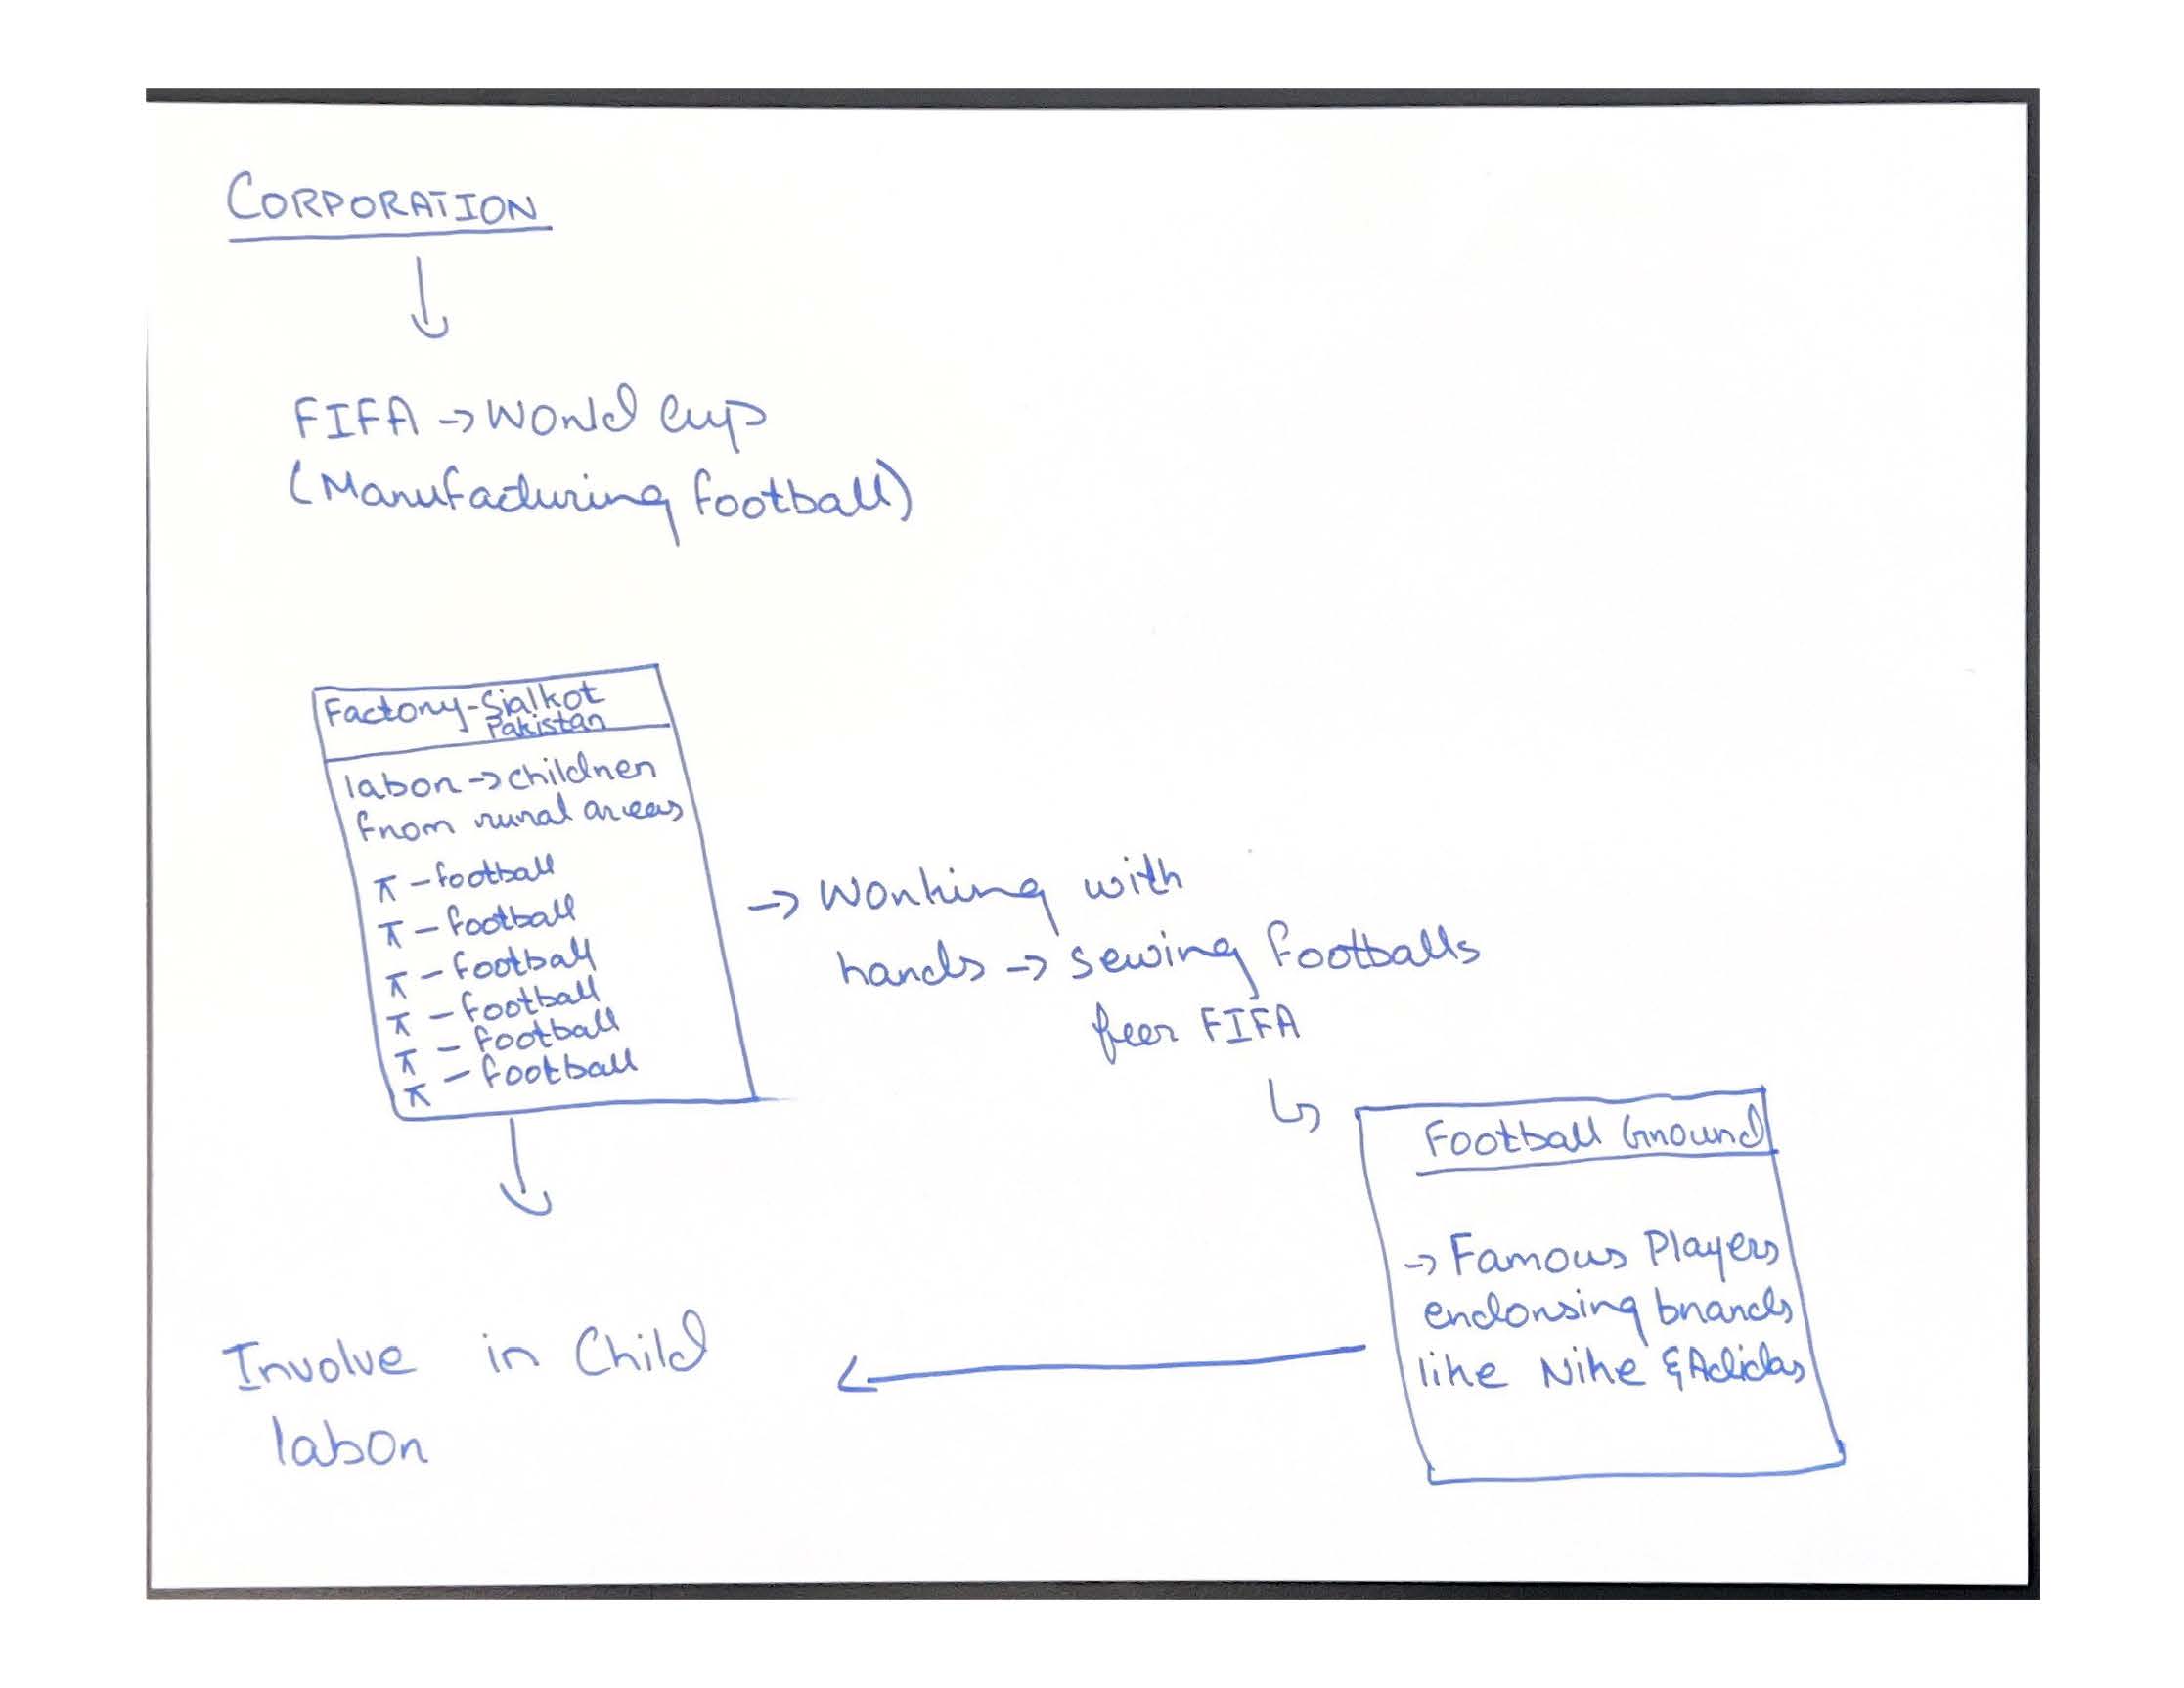 CORPORATION
FIFA → World Cup
(Manufacturing football)
Factory - Sialkot
Pakistan
labor → children
from rural areas
- football
- football
- football
- football
- football
- football
→ Working with
hands → sewing footballs
for FIFA
Football Ground
→ Famous Players
endorsing brands
like Nike & Adidas
Involve in Child
labor